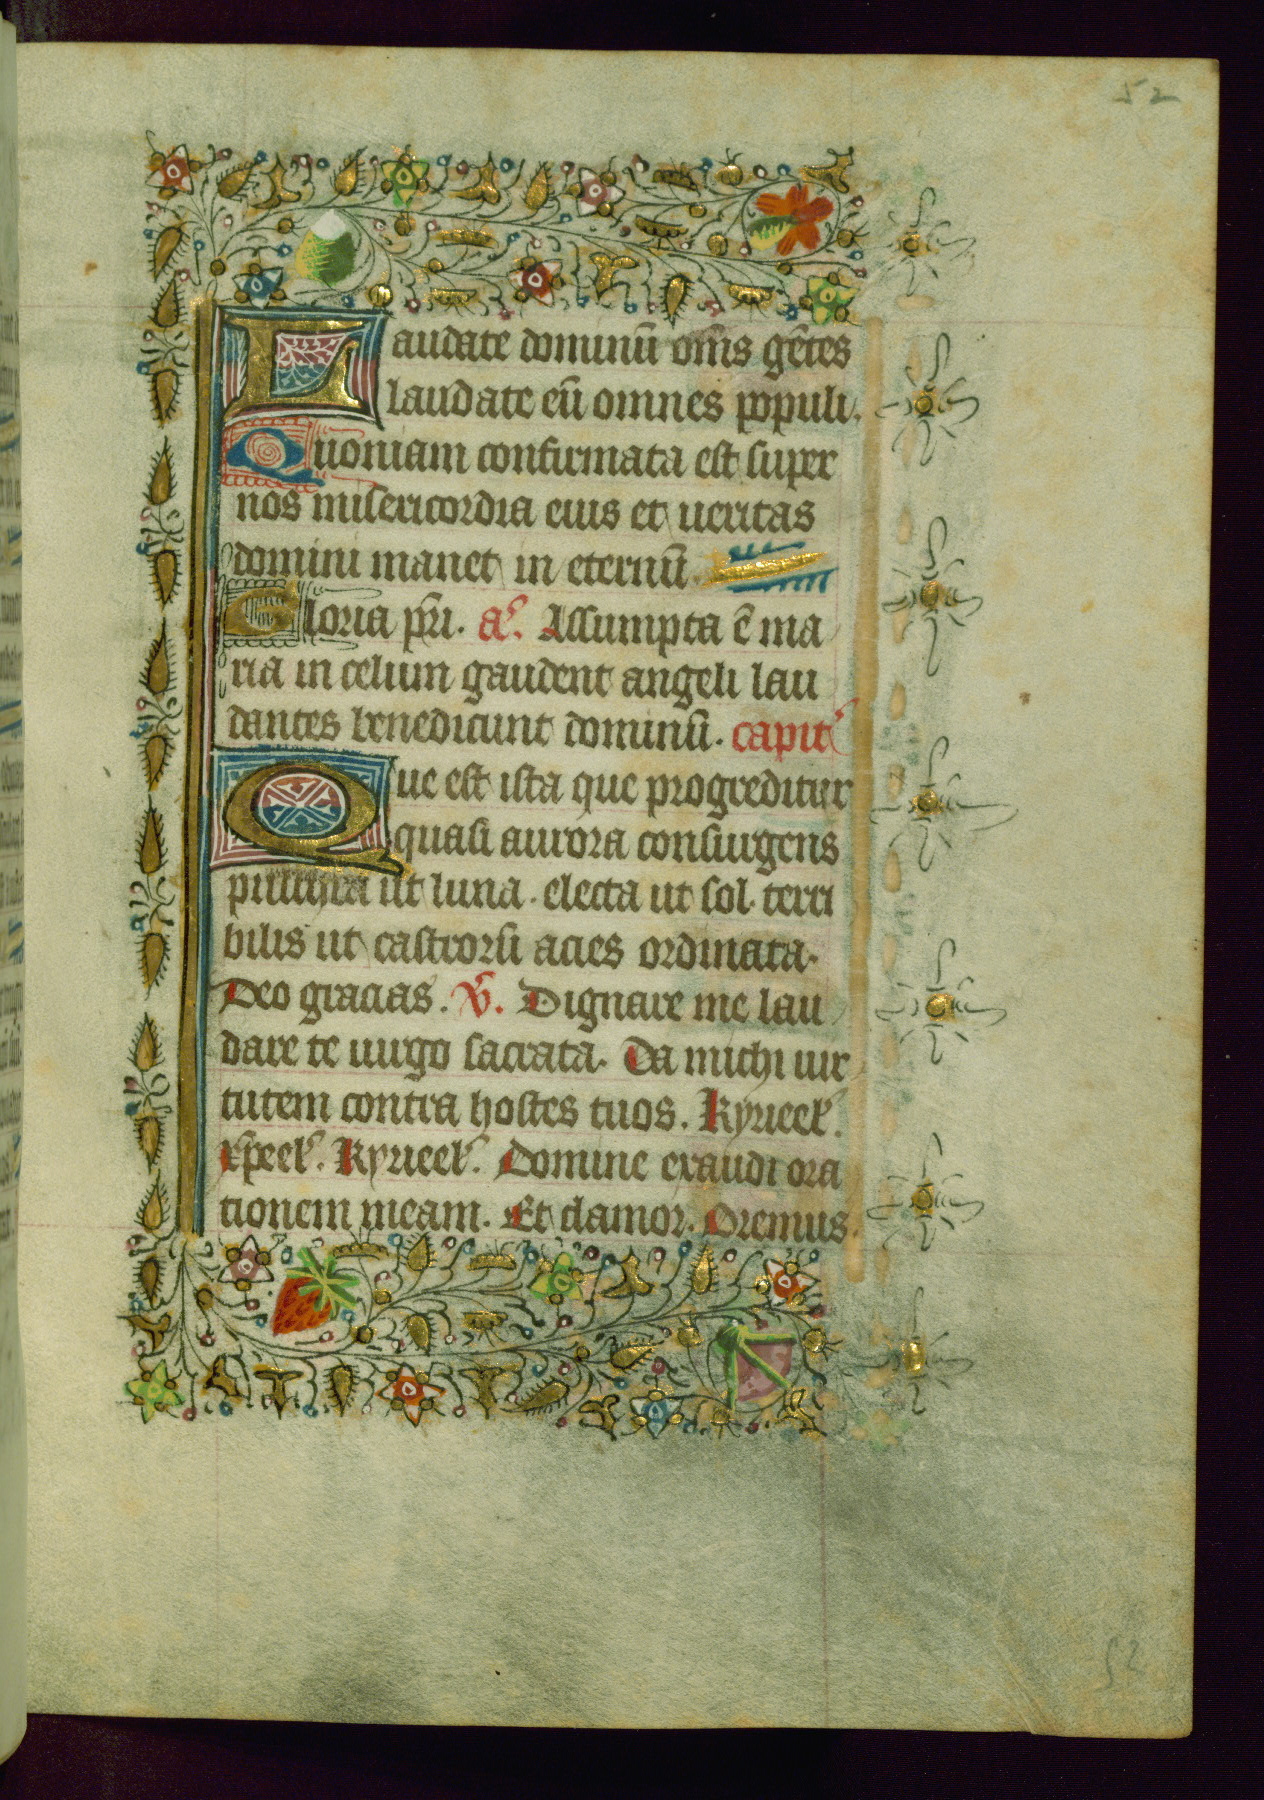 52
Laudate dominū om̄is gētes
laudate eū omnes populi.
Quoniam confirmata est super
nos misericordia eius et ueritas
domini manet in eternū.
Gloria pr̄i. a᷒. Assumpta ē ma
ria in celum gaudent angeli lau
dantes benedicunt dominū. capit᷒
Que est ista que progreditur
quasi aurora consurgens
pulchra ut luna. electa ut sol. terri
bilis ut castrorū acies ordinata.
Deo gracias. V̄. Dignare me lau
dare te uirgo sacrata. Da michi uir
tutem contra hostes tuos. Kyrieel᷒.
xp̄eel᷒. Kyrieel᷒. Domine exaudi ora
tionem meam. Et clamor. Oremus.
52